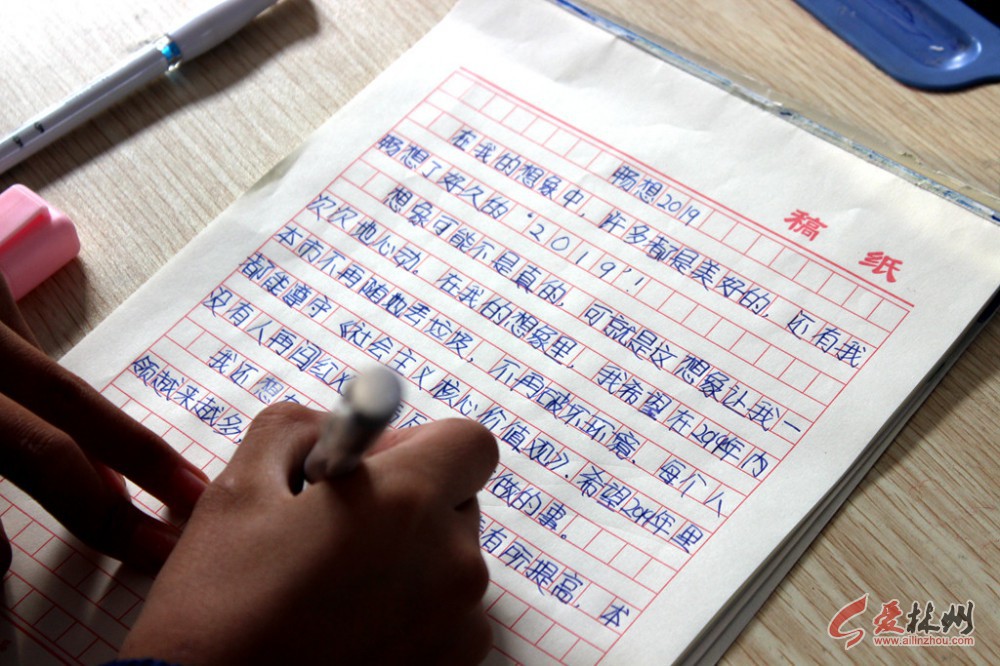 稿纸
畅想2019
在我的想象中,许多都是美好的,还有我
畅想了好久的‘2019’!
想象可能不是真的,可就是这想象让我一
次次地心动。在我的想象里,我希望在2019年内
本市不再随地丢垃圾,不再破坏环境,每个人
都能遵守《社会主义核心价值观》.希望2019年里
没有人再 做的事。
我还想 有所提高,本
领越来越多,
爱林州
www.ailinzhou.com